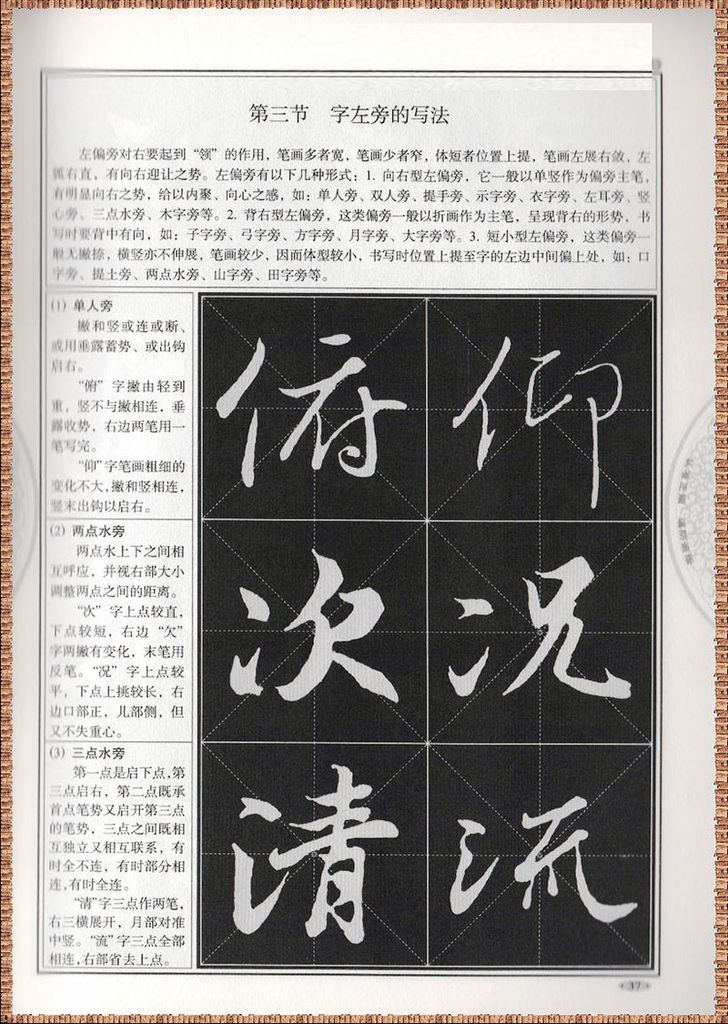 第三节　字左旁的写法
左偏旁对右要起到“领”的作用，笔画多者宽，笔画少者窄，体短者位置上提，笔画左展右敛，左
弧右直，有向右迎让之势。左偏旁有以下几种形式：1. 向右型左偏旁，它一般以单竖作为偏旁主笔，
有明显向右之势，给以内聚、向心之感，如：单人旁、双人旁、提手旁、示字旁、衣字旁、左耳旁、竖
心旁、三点水旁、木字旁等。2. 背右型左偏旁，这类偏旁一般以折画作为主笔，呈现背右的形势，书
写时要背中有向，如：子字旁、弓字旁、方字旁、月字旁、大字旁等。3. 短小型左偏旁，这类偏旁一
般无撇捺，横竖亦不伸展，笔画较少，因而体型较小，书写时位置上提至字的左边中间偏上处，如：口
字旁、提土旁、两点水旁、山字旁、田字旁等。
(1) 单人旁
撇和竖或连或断、
或用垂露蓄势、或出钩
启右。
“俯”字撇由轻到
重，竖不与撇相连，垂
露收势，右边两笔用一
笔写完。
“仰”字笔画粗细的
变化不大，撇和竖相连，
竖末出钩以启右。
(2) 两点水旁
两点水上下之间相
互呼应，并视右部大小
调整两点之间的距离。
“次”字上点较直，
下点较短，右边“欠”
字两撇有变化，末笔用
反笔。“况”字上点较
平，下点上挑较长，右
边口部正，儿部侧，但
又不失重心。
(3) 三点水旁
第一点是启下点，第
三点启右，第二点既承
首点笔势又启开第三点
的笔势，三点之间既相
互独立又相互联系，有
时全不连，有时部分相
连，有时全连。
“清”字三点作两笔，
右三横展开，月部对准
中竖。“流”字三点全部
相连，右部省去上点。
俯 仰
次 况
清 流
37